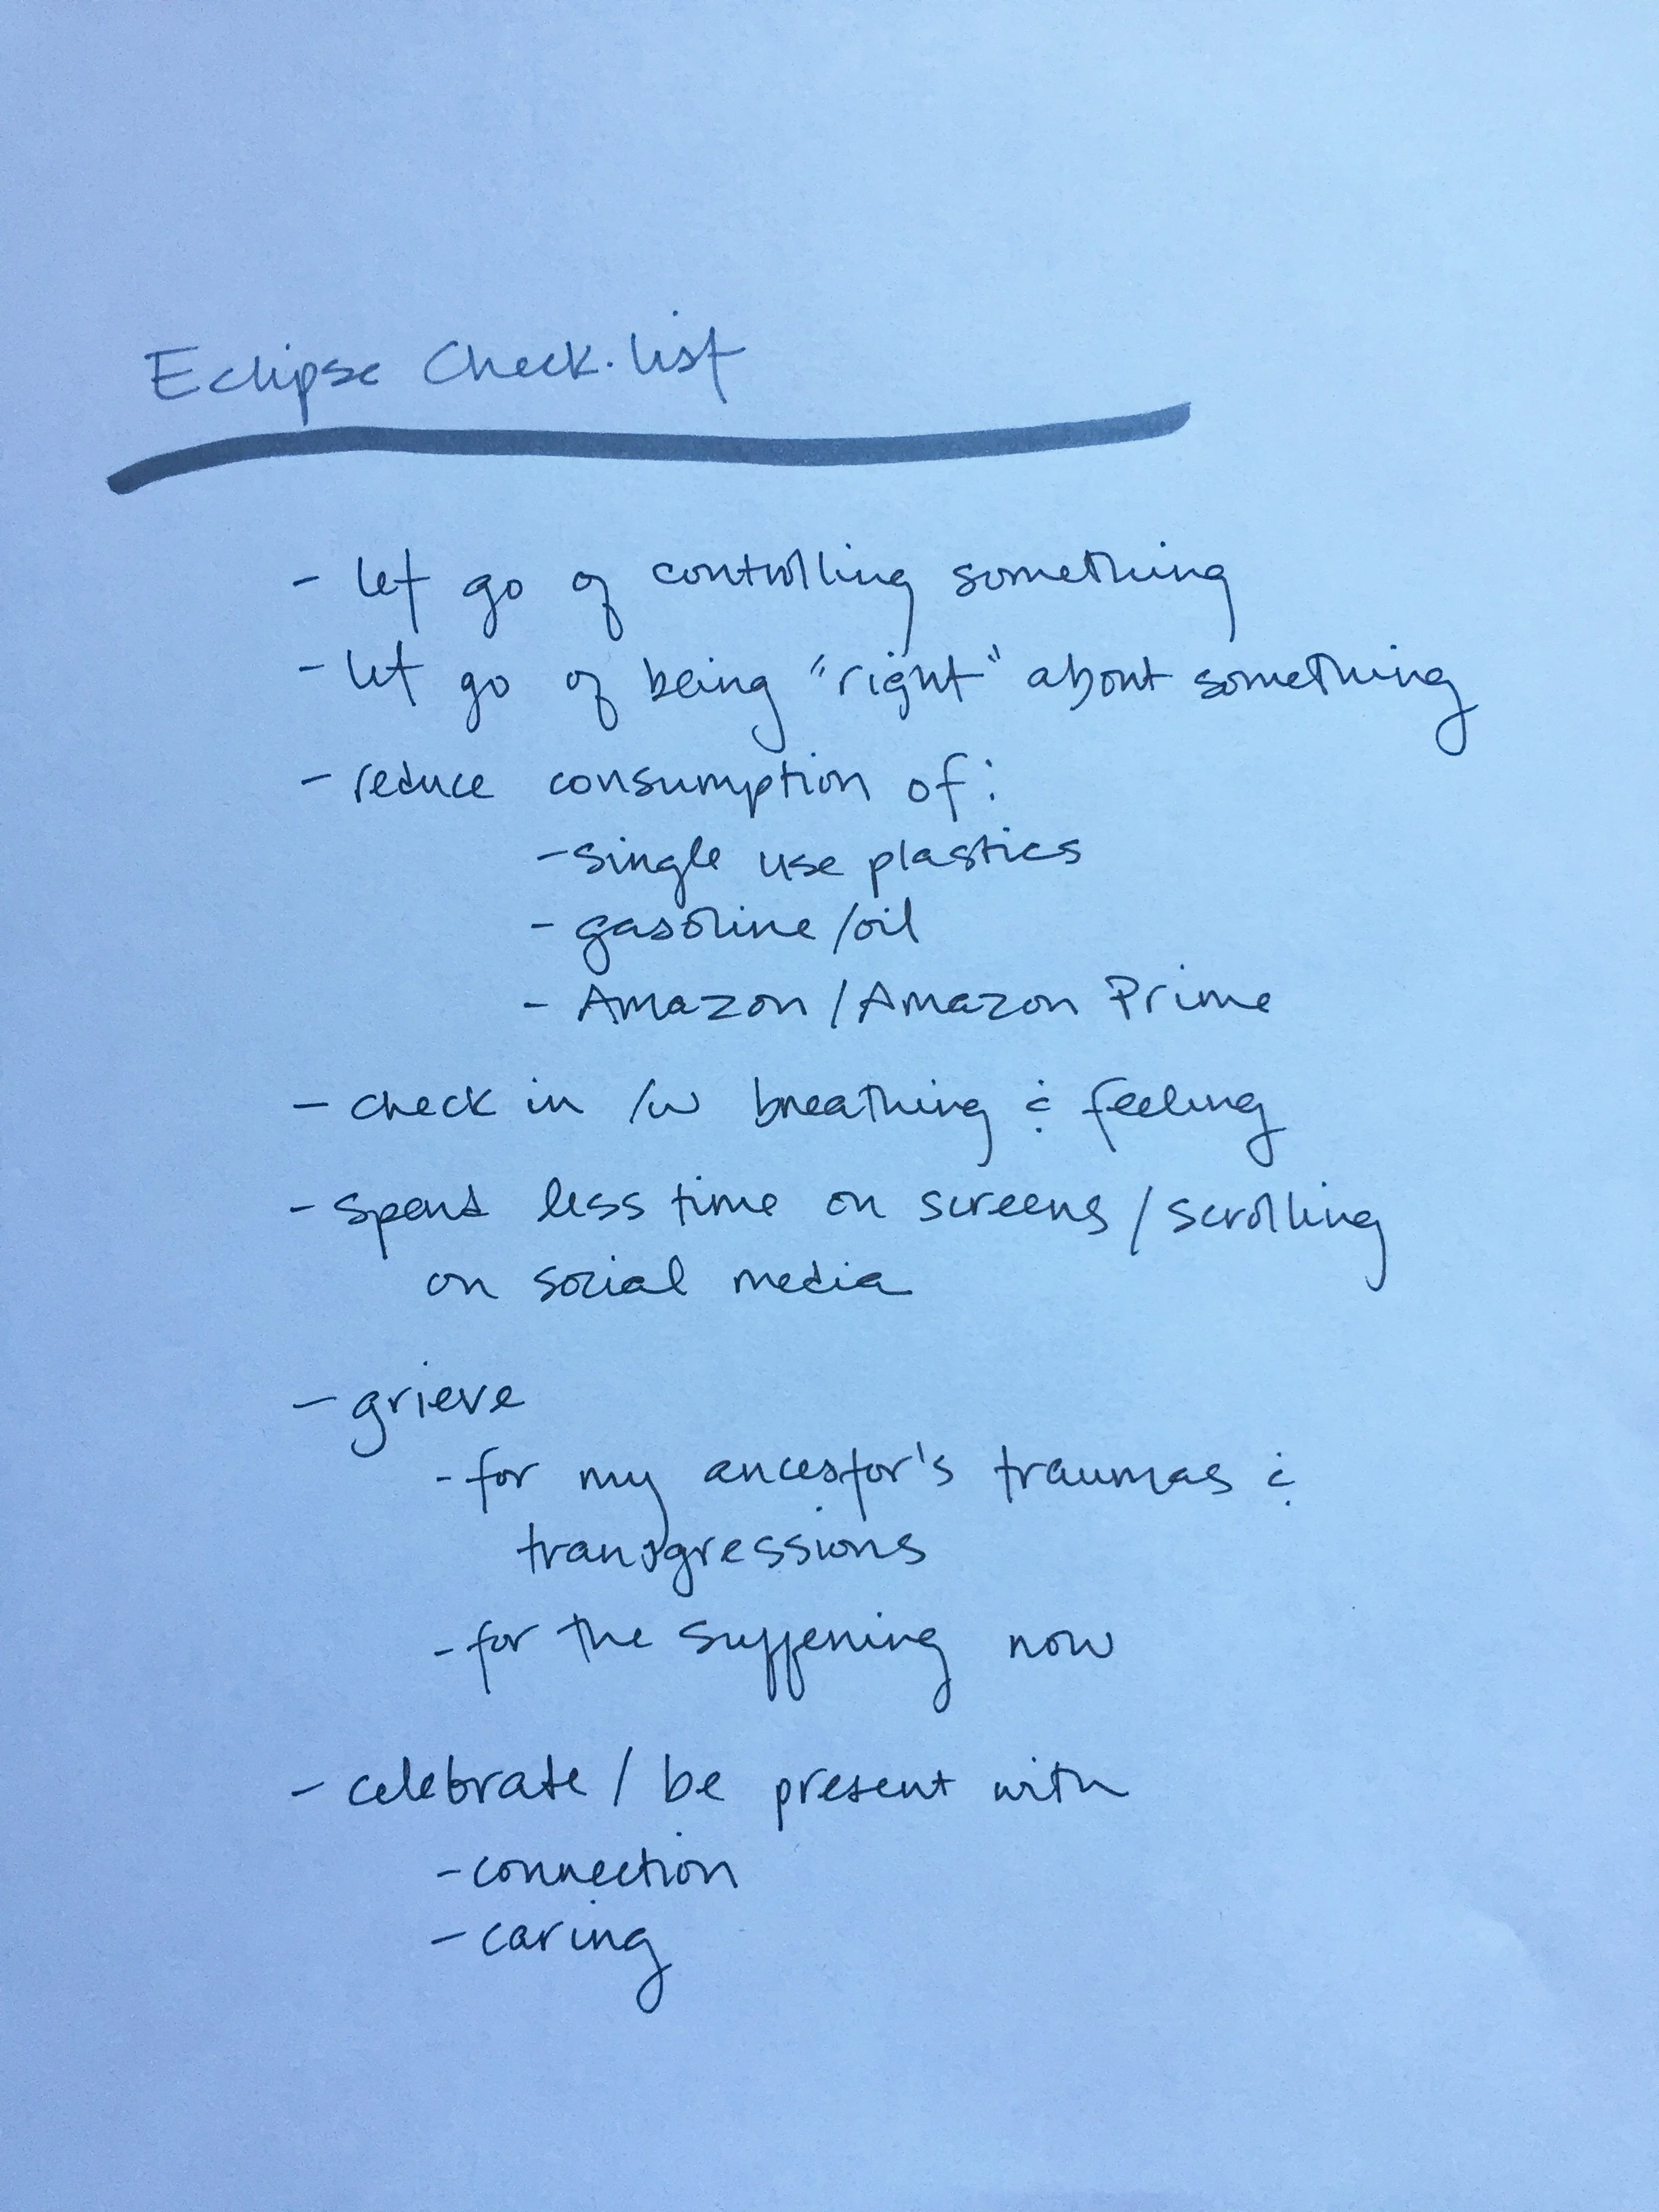 Eclipse Check.list
- let go of controlling something
- let go of being "right" about something
- reduce consumption of:
- single use plastics
- gasoline/oil
- Amazon/Amazon Prime
- check in /w breathing & feeling
- spend less time on screens/scrolling
on social media
- grieve
- for my ancestor's traumas &
transgressions
- for the suffering now
- celebrate / be present with
- connection
- caring